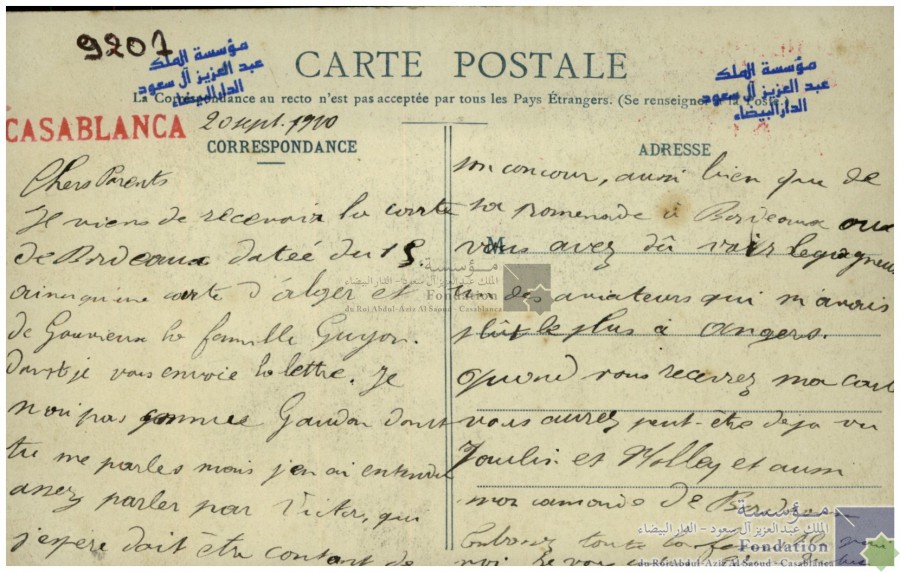 9207
مؤسسة الملك
عبد العزيز آل سعود
الدار البيضاء
CARTE POSTALE
مؤسسة الملك
عبد العزيز آل سعود
الدار البيضاء
La Correspondance au recto n'est pas acceptée par tous les Pays Étrangers. (Se renseigner à la Poste
CASABLANCA
20 sept. 1910
CORRESPONDANCE
Chers Parents
Je viens de recevoir la carte
de Bordeaux datée du 15
ainsi qu'une carte d'Alger et
de Gouvieux la famille Guyon.
Dont je vous envoie la lettre. Je
n'ai pas connue Gaudon dont
tu me parles mais j'en ai entendu
assez parler par Victor, qui
j'espere doit être content de
ADRESSE
M
son concour, aussi bien que de
sa promenade à Bordeaux ou
vous avez dû voir legagneux
un des aviateurs qui m'avais
plût le plus à Angers.
Quand vous recevrez ma carte
vous aurez peut-être deja vu
Joulin et Holley et aussi
mon camarade de
toute la
مؤسسة
الملك عبد العزيز آل سعود - الدار البيضاء
Fondation
du Roi Abdul-Aziz Al Saoud - Casablanca
مؤسسة
الملك عبد العزيز آل سعود - الدار البيضاء
Fondation
du Roi Abdul-Aziz Al Saoud - Casablanca